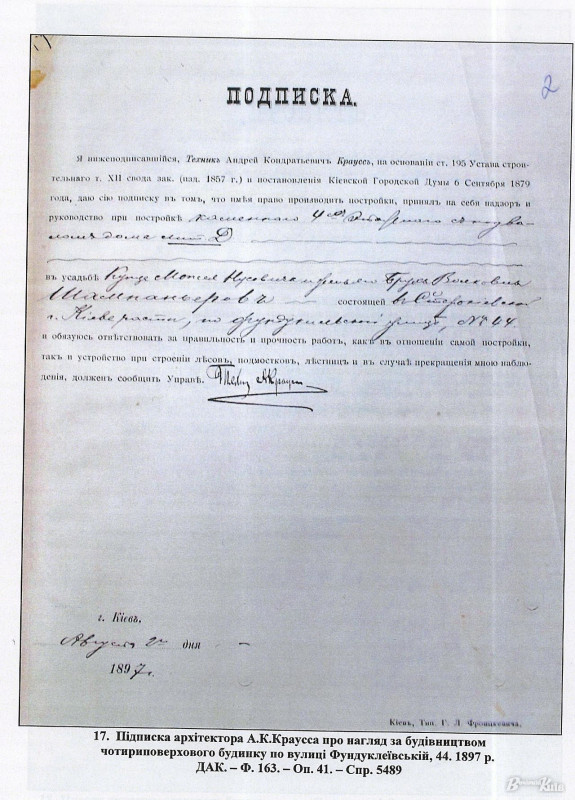 2
ПОДПИСКА.
Я нижеподписавшійся, Техникъ Андрей Кондратьевичъ Крауссъ, на основаніи ст. 195 Устава строи-
тельнаго т. XII свода зак. (изд. 1857 г.) и постановленія Кіевской Городской Думы 6 Сентября 1879
года, даю сію подписку въ томъ, что имѣя право производить постройки, принялъ на себя надзоръ и
руководство при постройкѣ каменнаго 4хъ этажнаго съ подва-
ломъ дома лит. Д
въ усадьбѣ Купца Мотеля и Брухи Волковны
Шампаньеровъ состоящей въ Старокіевской
г. Кіева части, по Фундуклеевской улицѣ, № 44.
и обязуюсь отвѣтствовать за правильность и прочность работъ, какъ въ отношеніи самой постройки,
такъ и устройство при строеніи лѣсовъ, подмостковъ, лѣстницъ и въ случаѣ прекращенія мною наблю-
денія, долженъ сообщить Управѣ. Техникъ А.Крауссъ
г. Кіевъ.
Августа 2го дня
1897 г.
Кіевъ, Тип. Г. Л. Фронцкевича.
17. Підписка архітектора А.К.Краусса про нагляд за будівництвом
чотириповерхового будинку по вулиці Фундуклеївській, 44. 1897 р.
ДАК. – Ф. 163. – Оп. 41. – Спр. 5489